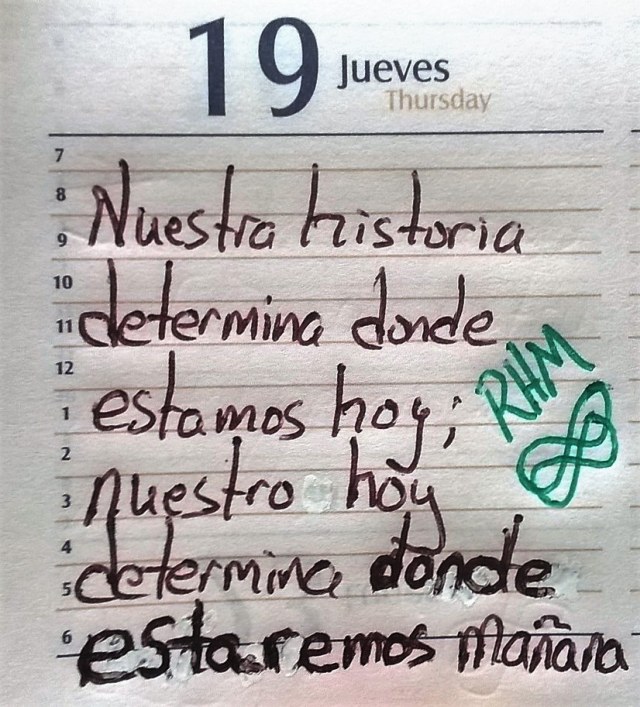 19 Jueves
Thursday
7
8 Nuestra historia
9
10 determina donde
11
12
1 estamos hoy; RHM
2
3 nuestro hoy
4
5 determina donde
6 estaremos mañana